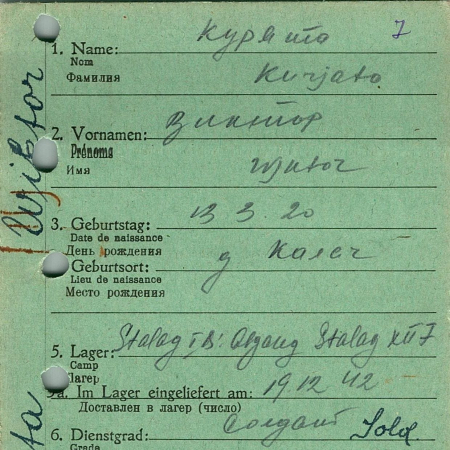 Курято 7
1. Name:
Nom
Фамилия
Kurjato
2. Vornamen: Виктор
Prénoms
Имя
Wjktor
3. Geburtstag: 13 3. 20
Date de naissance
День рождения
Geburtsort: д
Lieu de naissance
Место рождения
5. Lager: Stalag I B: Abgang Stalag
Camp
Лагерь
5a. Im Lager eingeliefert am: 19.12 42
Доставлен в лагерь (число)
6. Dienstgrad: Солдат Sold.
Grade
Wjktor